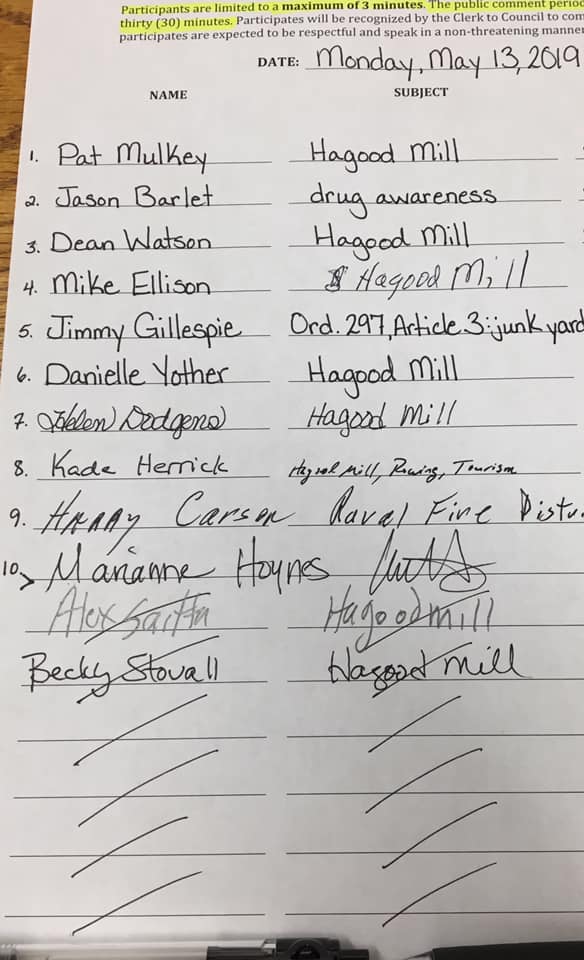 Participants are limited to a maximum of 3 minutes. The public comment period
thirty (30) minutes. Participates will be recognized by the Clerk to Council to com
participates are expected to be respectful and speak in a non-threatening manner
DATE: Monday, May 13, 2019
NAME SUBJECT
1. Pat Mulkey Hagood Mill
2. Jason Barlet drug awareness
3. Dean Watson Hagood Mill
4. Mike Ellison Hagood Mill
5. Jimmy Gillespie Ord. 297, Article 3: junk yard
6. Danielle Yother Hagood Mill
7. Helen Dodgens Hagood Mill
8. Kade Herrick Hagood Mill, Rowing, Tourism
9. Harry Carson Raral Fire Distr.
10. Marianne Hoynes
Alex Saitta Hagood mill
Becky Stovall Hagood Mill